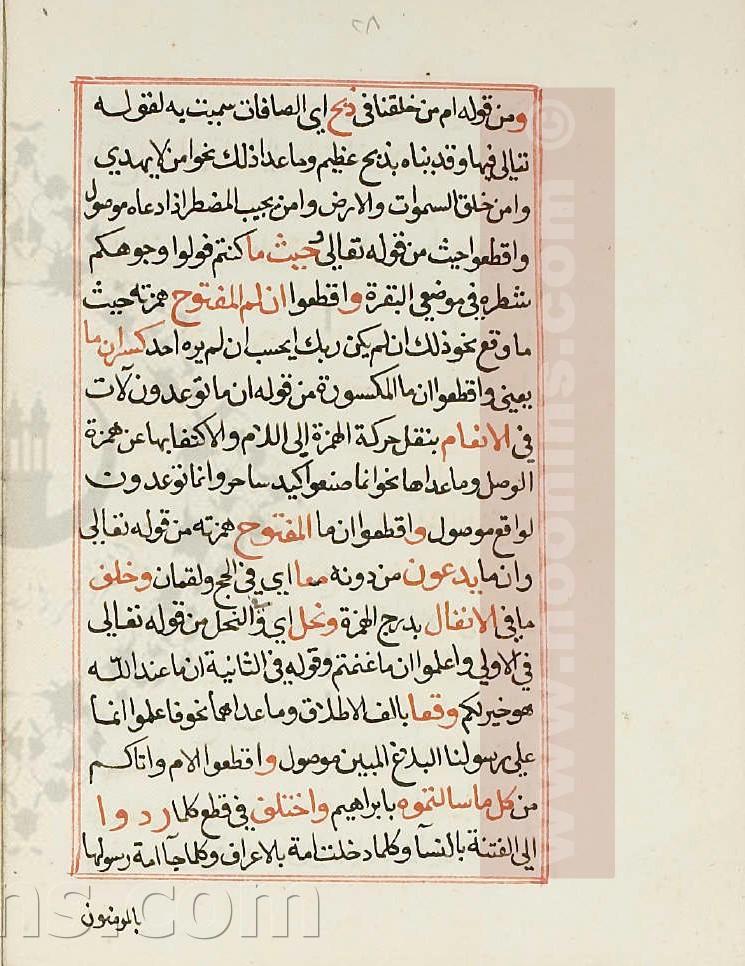 ٢٨
ومن قوله ام من خلقنا في ذبح اي الصافات سميت به لقوله
تعالى فيها وقد يناه بذبح عظيم وما عدا ذلك نحو امن لا يهدي
وامن خلق السموات والارض وامن يجيب المضطر اذا دعاه موصول
واقطعوا حيث من قوله تعالى وحيث ما كنتم فولوا وجوهكم
شطره في موضعي البقرة واقطعوا ان لم المفتوح همزته حيث
ما وقع نحو ذلك ان لم يكن ربك ايحسب ان لم يره احد كسران ما
يعني واقطعوا ان ما المكسورة من قوله ان ما توعدون لآت
في الانعام بنقل حركة الهمزة الى اللام والاكتفا بها عن همزة
الوصل وما عداها نحو انما صنعوا كيد ساحر وانما توعدون
لواقع موصول واقطعوا ان ما المفتوح همزته من قوله تعالى
وان ما يدعون من دونه معا اي في الحج ولقمان وخلف
ما في الانفال بدرج الهمزة ونحل اي والنحل من قوله تعالى
في الاولى واعلموا ان ما غنمتم وقوله في الثانية ان ما عند الله
هو خير لكم وقعا بالف الاطلاق وما عداهما نحو فاعلموا انما
على رسولنا البلاغ المبين موصول واقطعوا لام واتاكم
من كل ما سالتموه بابراهيم واختلف في قطع كلما ردوا
الى الفتنة بالنسآ وكلما دخلت امة بالاعراف وكلما جآ امة رسولها
بالمومنون
www.noormins.com ©
ns.com